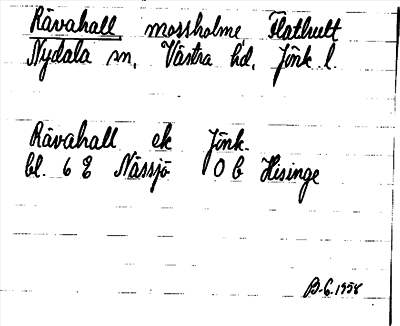 Rävahall mossholme, Flathult
Nydala sn, Västra hd. Jönk. l.
Rävahall ek Jönk.
bl. 6 E Nässjö 0 b Hisinge
B-G. 1958